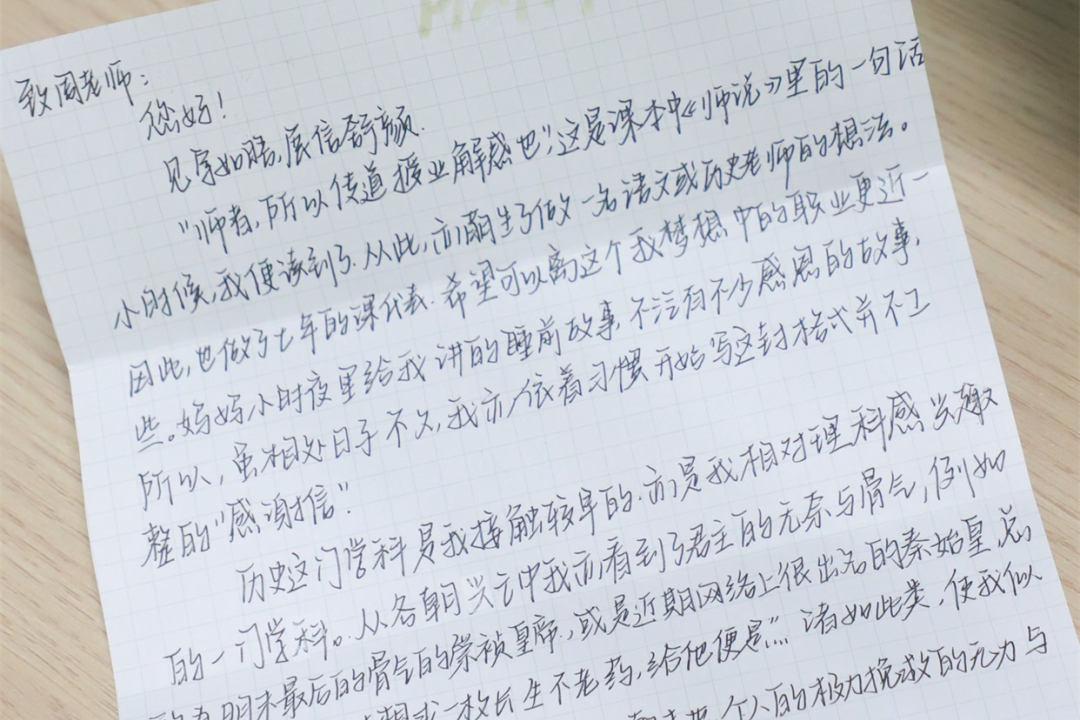 致周老师：
您好！
见字如晤，展信舒颜.
"师者，所以传道授业解惑也"，这是课本中《师说》里的一句话
小时候，我便读到了.从此，亦萌生了做一名语文或历史老师的想法。
因此，也做了七年的课代表.希望可以离这个我梦想中的职业更近一
些。妈妈小时夜里给我讲的睡前故事.不泛有不少感恩的故事，
所以，虽相处日子不久，我亦依着习惯开始写这封格式并不工
整的"感谢信"
历史这门学科是我接触较早的.亦是我相对理科感兴趣
的一门学科。从各朝兴亡中我亦看到了君主的无奈与骨气，例如
为明末最后的骨气的崇祯皇帝，或是近期网络上很出名的秦始皇，总
一枚长生不老药，给他便是"诸如此类，使我似
个人的极力挽救的无力与